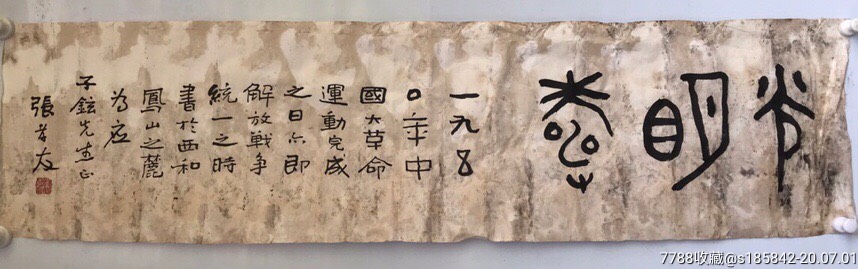 光明
一九五
〇年中
國大革命
運動完成
之日亦即
解放戰爭
統一之時
書於西和
鳳山之麓
為應
子鉉先生正
張
7788收藏@s185842-20.07.01